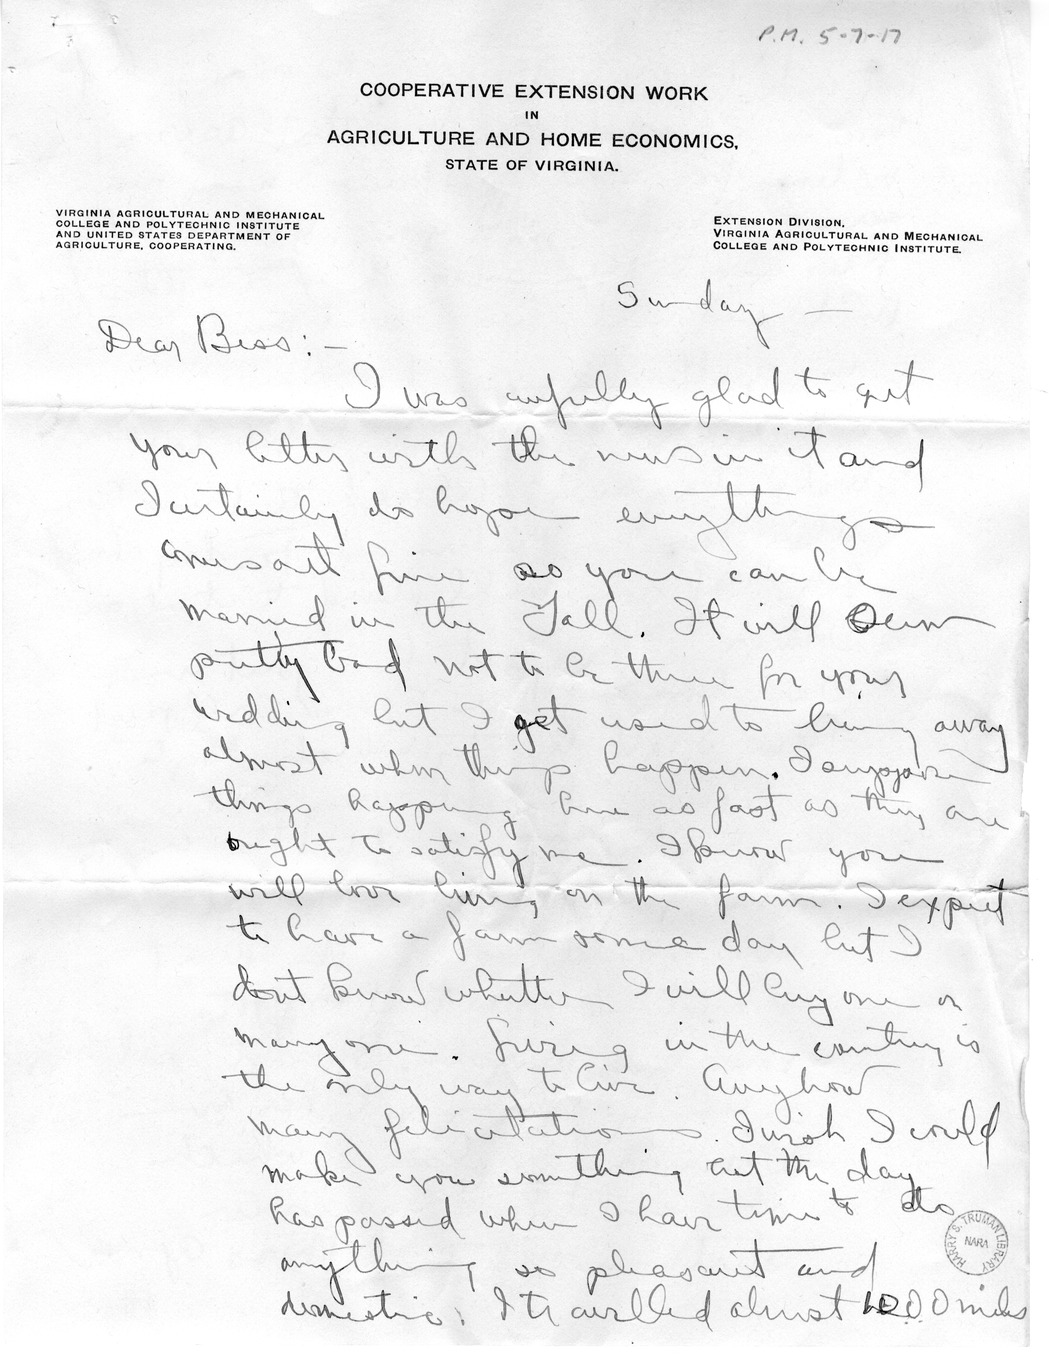 P.M. 5-7-17
COOPERATIVE EXTENSION WORK
IN
AGRICULTURE AND HOME ECONOMICS,
STATE OF VIRGINIA.
VIRGINIA AGRICULTURAL AND MECHANICAL
COLLEGE AND POLYTECHNIC INSTITUTE
AND UNITED STATES DEPARTMENT OF
AGRICULTURE, COOPERATING.
EXTENSION DIVISION,
VIRGINIA AGRICULTURAL AND MECHANICAL
COLLEGE AND POLYTECHNIC INSTITUTE.
Sunday —
Dear Bess:—
I was awfully glad to get
your letter with the news in it and
I certainly do hope everything
comes out fine so you can be
married in the Fall. It will seem
pretty bad not to be there for your
wedding but I get used to being away
almost when things happen. I suppose
things happening here as fast as they are
ought to satisfy me. I know you
will love living on the farm. I expect
to have a farm some day but I
dont know whether I will buy one or
marry one. Living in the country is
the only way to live. Anyhow
many felicitations. I wish I could
make you something but the day
has passed when I have time to do
anything so pleasant and
domestic. I travelled almost 1000 miles
HARRY S. TRUMAN LIBRARY
NARA